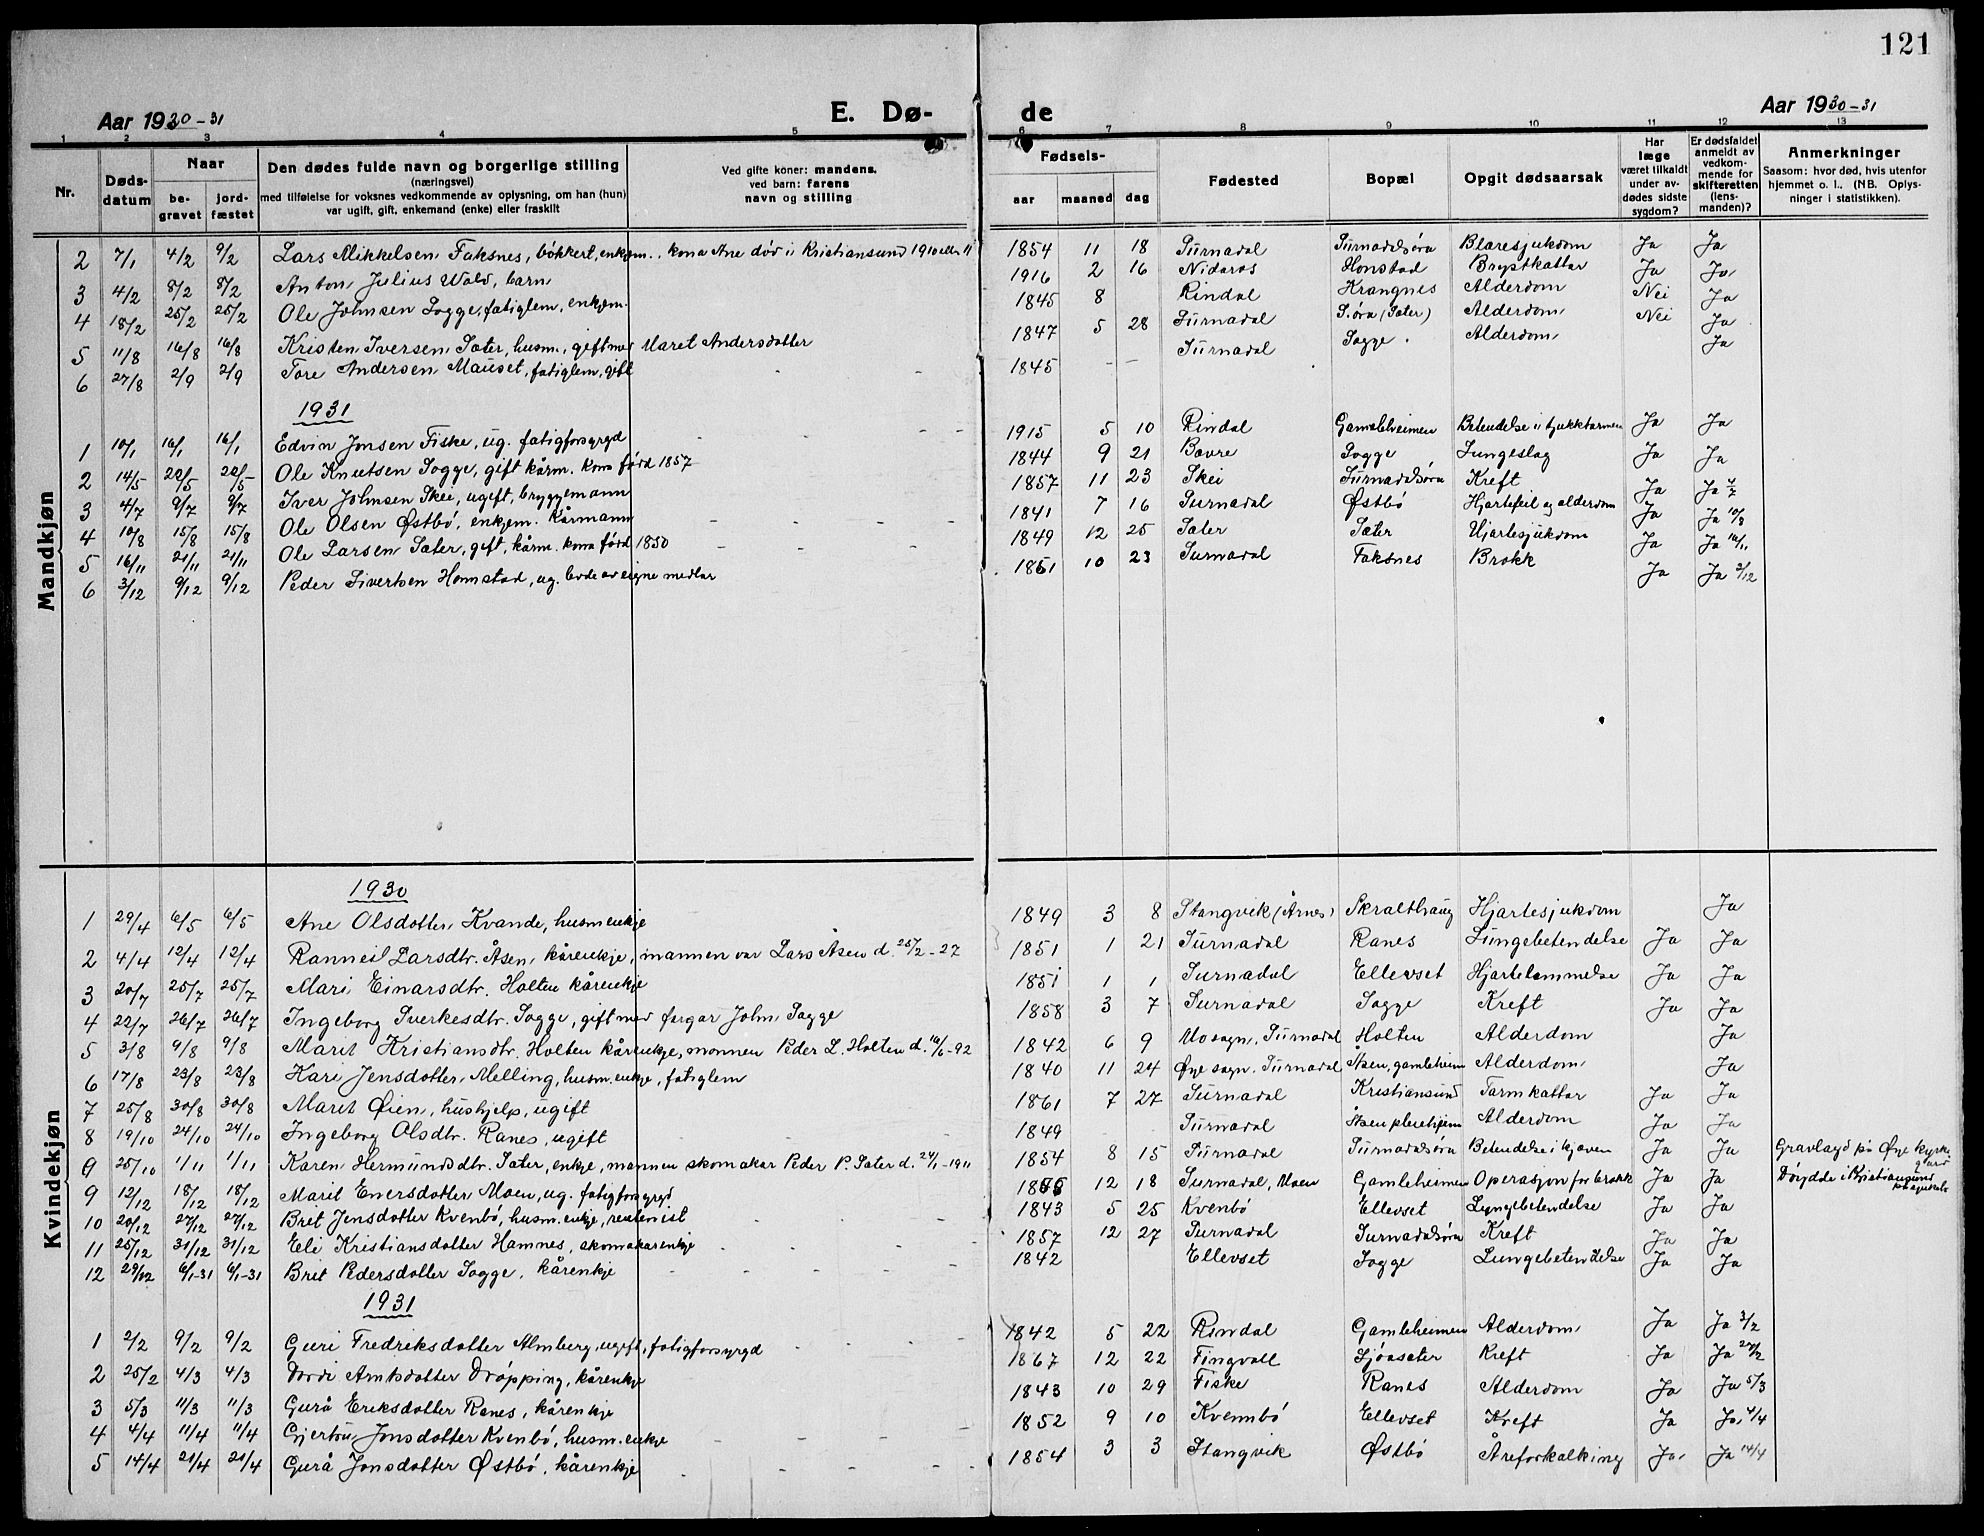 121
Aar 1930-31 E. Dø- de Aar 1930-31
1 2 3 4 5 6 7 8 9 10 11 12 13
Nr. Døds-datum Naar be-gravet jord-fæstet Den dødes fulde navn og borgerlige stilling (næringsvei) med tilføielse for voksnes vedkommende av oplysning, om han (hun) var ugift, gift, enkemand (enke) eller fraskilt Ved gifte koner: mandens. ved barn: farens navn og stilling Fødsels- aar maaned dag Fødested Bopæl Opgit dødsaarsak Har læge været tilkaldt under av-dødes sidste sygdom? Er dødsfaldet anmeldt av vedkom-mende for skifteretten (lens-manden)? Anmerkninger Saasom: hvor død, hvis utenfor hjemmet o. l., (NB. Oplys-ninger i statistikken).
Mandkjøn
2 7/1 4/2 9/2 Lars Mikkelsen Faksnes, bökkert, enkjem., kona Ane död i Kristiansund 1910 eller 11 1854 11 18 Surnadal Surnadalsöra Blæresjukdom Ja Ja
3 4/2 8/2 8/2 Anton Julius Wald, barn 1916 2 16 Nidaros Honstad Brystkattar Ja Ja
4 18/2 25/2 25/2 Ole Johnsen Sogge, fatiglem, enkjem. 1845 8 Rindal Krangnes Alderdom Nei Ja
5 11/8 16/8 16/8 Kristen Iversen Sæter, husm., gift med Maret Andersdotter 1847 5 28 Surnadal S.öra (Sæter) Alderdom Nei Ja
6 27/8 2/9 2/9 Tore Andersen Mauset, fatiglem, gift 1845 - - Surnadal Sogge Alderdom Ja
1931
1 10/1 16/1 16/1 Edvin Jonsen Fiske, ug. fatigforsyrgd 1915 5 10 Rindal Gamleheimen Betendelse i tjukktarmen Ja Ja
2 14/5 22/5 22/5 Ole Knutsen Sogge, gift kårm. kona född 1857 1844 9 21 Bøvre Sogge Lungeslag Ja Ja
3 4/7 9/7 9/7 Iver Johnsen Skei, ugift, bryggemann 1857 11 23 Skei Surnadalsöra Kreft Ja Ja 4/7
4 10/8 15/8 15/8 Ole Olsen Østbö, enkjem. Kårmann 1841 7 16 Surnadal Østbö Hjartefeil og alderdom Ja Ja 10/8
5 16/11 21/11 21/11 Ole Larsen Sæter, gift, kårm. kona född 1850 1849 12 25 Sæter Sæter Hjartesjukdom Ja Ja 16/11
6 3/12 9/12 9/12 Peder Sivertsen Honstad, ug. levde av eigne medlar 1851 10 23 Surnadal Faksnes Brokk Ja Ja 3/12
Kvindekjøn
1930
1 29/4 6/5 6/5 Ane Olsdotter Kvande, husmenkje 1849 3 8 Stangvik (Årnes) Skralthaug Hjartesjukdom Ja
2 4/4 12/4 12/4 Ranneil Larsdtr. Åsen, kårenkje, mannen var Lars Åsen d. 25/2-27 1851 1 21 Surnadal Ranes Lungebetendelse Ja Ja
3 20/7 25/7 25/7 Mari Einarsdtr. Holten kårenkje 1851 1 1 Surnadal Ellevset Hjartelammelse Ja Ja
4 22/7 26/7 26/7 Ingeborg Sverkesdtr. Sogge, gift med fargar John Sogge 1858 3 7 Surnadal Sogge Kreft Ja Ja
5 3/8 9/8 9/8 Marit Kristiansdtr. Holten kårenkje, mannen Peder L. Holten d. 16/6-92 1842 6 9 Mo sogn, Surnadal Holten Alderdom Ja
6 17/8 23/8 23/8 Kari Jensdotter Melling, husm.enkje, fatiglem 1840 11 24 Øye sogn, Surnadal Åsen, gamleheim Alderdom Ja
7 25/8 30/8 30/8 Marit Øien, hushjelp, ugift 1861 7 27 Surnadal Kristiansund Tarmkattar Ja Ja
8 19/10 24/10 24/10 Ingeborg Olsdtr. Ranes, ugift 1849 Surnadal Åsen pleiehjem Alderdom Ja Ja
9 25/10 1/11 1/11 Karen Hermundsdtr. Sæter, enkje, mannen skomakar Peder P. Sæter d. 24/1-1911 1854 8 15 Surnadal Surnadalsöra Betendelse i kjæven Ja Ja Gravlagd på Øye kyrkjegard
9 12/12 18/12 18/12 Marit Enersdotter Moen, ug. fatigforsyrgd 12 18 Surnadal, Moen Gamleheimen Operasjon for brokk Ja Ja Döydde i Kristiansund
10 20/12 27/12 27/12 Brit Jensdotter Kvenbö, husm.enkje, 1843 5 25 Kvenbö Ellevset Lungebetendelse Ja Ja
11 25/12 31/12 31/12 Eli Kristiansdotter Hamnes, skomakarenkje 1857 12 27 Surnadal Surnadalsöra Kreft Ja Ja
12 29/12 6/1-31 6/1-31 Brit Pedersdotter Sogge, kårenkje 1842 Ellevset Sogge Lungebetendelse Ja Ja
1931
1 2/2 9/2 9/2 Guri Fredriksdotter Almberg, ugift, fatigforsyrgd 1842 5 22 Rindal Gamleheimen Alderdom Ja Ja 3/2
2 25/2 4/3 4/3 Dordi Arntsdotter Dröpping, kårenkje 1867 12 22 Tingvoll Sjöaseter Kreft Ja Ja 27/2
3 5/3 11/3 11/3 Gurå Eriksdotter Ranes, kårenkje 1843 10 29 Fiske Ranes Alderdom Ja Ja 5/3
4 4/4 11/4 11/4 Gjertru Jonsdotter Kvenbö, husm.enkje 1852 9 10 Kvennbö Ellevset Kreft Ja Ja 4/4
5 14/4 21/4 21/4 Gurå Jonsdotter Østbö, kårenkje 1854 3 3 Stangvik Østbö Åreforkalking Ja Ja 14/4